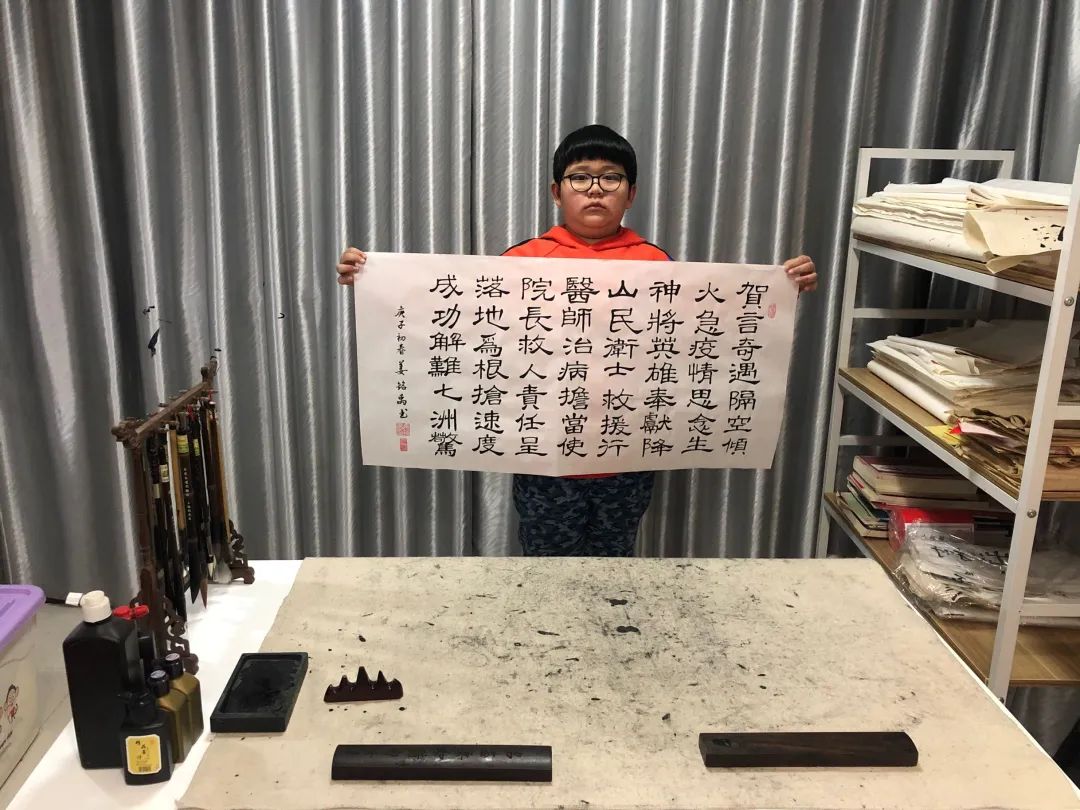 賀言奇遇隔空傾
火急疫情思念生
神將英雄奉獻降
山民衛士救援行
醫師治病擔當使
院長救人責任呈
落地為根搶速度
成功解難七洲驚
庚子初春姜銘禹书